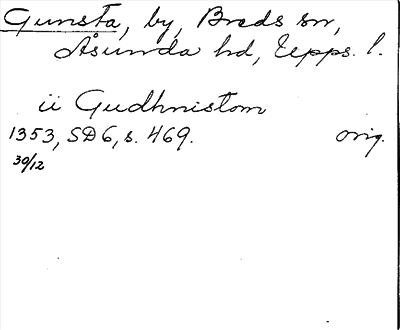 Gunsta, by, Breds sn,
Åsunda hd, Upps. l.
ii Gudhnistom
1353, SD6, s. 469. orig.
30/12